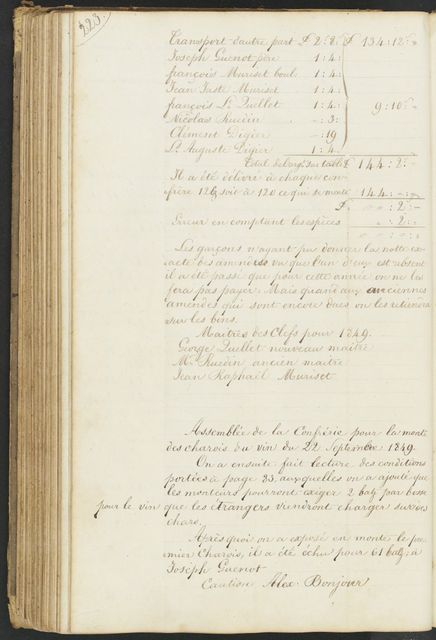 223.
Transport d'autre part £ 2:8: £ 134:12:"
Joseph Guenot père 1:4:
françois Muriset boul. 1:4:
Jean Juste Muriset 1:4:
françois Ls Quellet 1:4: 9:10:"
Nicolas Ruedin " :3:
Clément Digier " :19
Ls Auguste Digier 1:4:
Total de l'arg. sur table £ 144:2:"
Il a été délivré à chaque con-
frère 12 bz soit à 120 ce qui se monte 144:":"
£ " ":2:"
Erreur en comptant les espèces " 2:"
" ":":"
Les garçons n'ayant pu donner la notte ex-
acte des amendes vu que l'un d'eux est absent
il a été passé que pour cette année on ne les
fera pas payer. Mais quand aux anciennes
amendes qui sont encore dues, on les retiendra
sur les bins.
Maitres des Clefs pour 1849.
George Quellet nouveau maitre
Mr Ruedin ancien maitre
Jean Raphaël Muriset
Assemblée de la Confrérie pour la monte
des charois du vin du 22 Septembre 1849.
On a ensuite fait lecture des conditions
portées à page 83, auxquelles on a ajouté que
les monteurs pourront exiger 2 batz par bosse
pour le vin que les étrangers viendront charger sur des
chars.
Après quoi on a exposé en monte le pre-
mier Charois, il a été échu pour 61 batz à
Joseph Guenot
Caution Alex. Bonjour